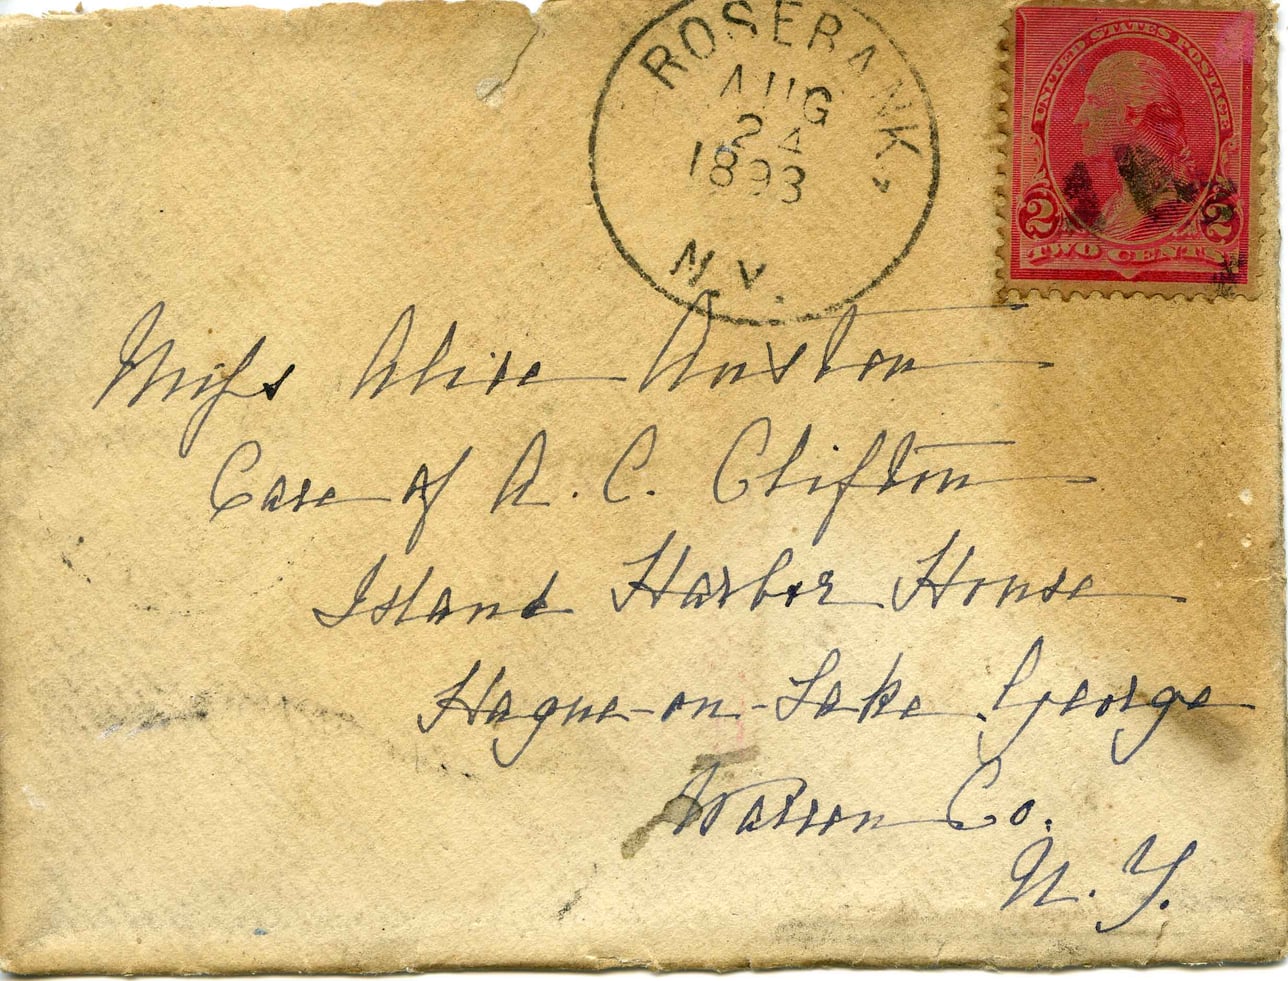 ROSEBANK,
AUG
24
1893
N.Y.
UNITED STATES POSTAGE
2 2
TWO CENTS
Miss Alice Austen
Care of A. C. Clifton
Island Harbor House
Hague-on-Lake George
Warren Co.
N. Y.